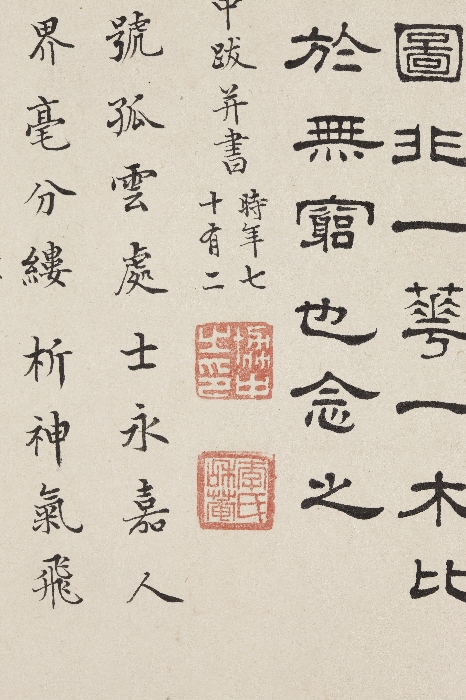 圖非一華一木比
於無窮也念之
中跋并書
時年七
十有二
號孤雲處士永嘉人
界毫分縷析神氣飛